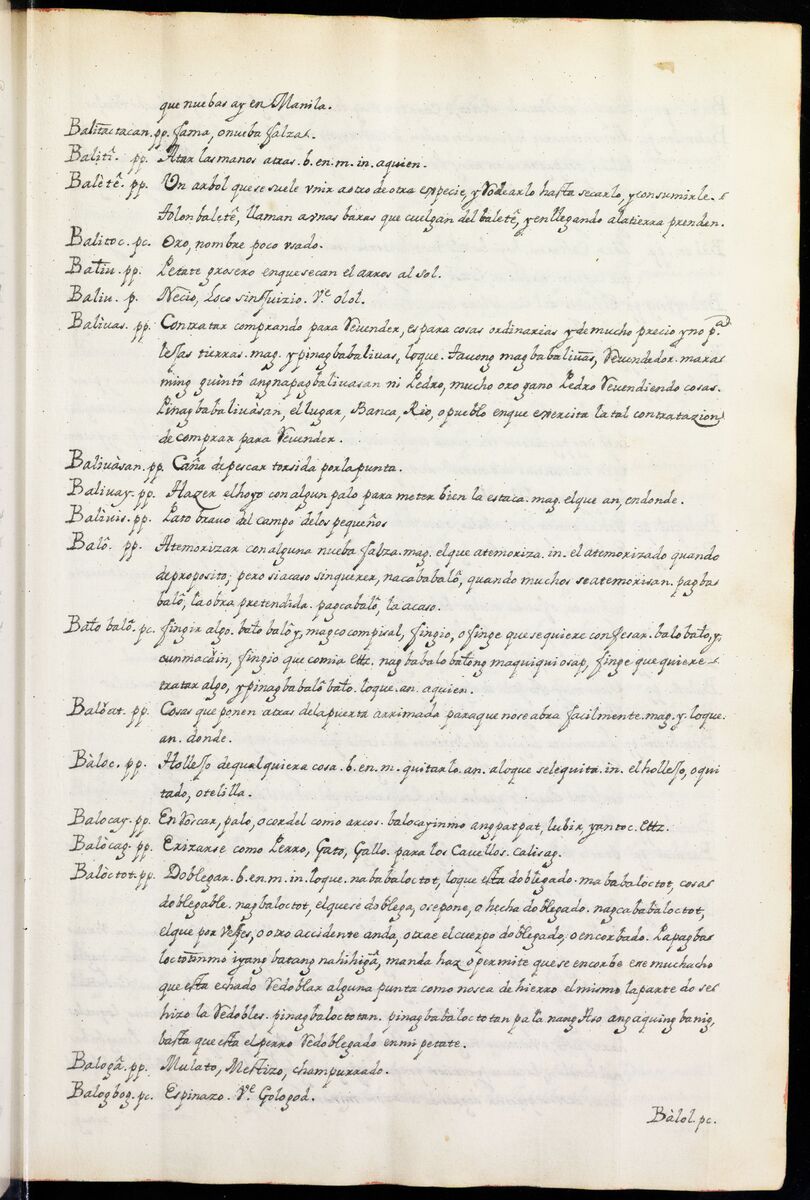 que nuebas ay en Manila.
Balitactacan. pp. fama, o nueba falza.
Balitî. pp. Atar las manos atras. b. en. m. in. aquien.
Balètê. pp. Un arbol que se suele vnir a otro de otra expecie, y Rodearlo hasta secarlo, y consumirle.
Tolon baletê, llaman a vnas baras que cuelgan del baletê, y en llegando a la tierra prenden.
Balitoc. pc. Oro, nombre poco vsado.
Baliu. pp. Petate grosero en que secan el arros al sol.
Baliu. p. Necio, Loco sin Juizio. Vᵉ. olol.
Balivas. pp. Contratar comprando para Revender, es para cosas ordinarias y de mucho precio y no pᵃ
lessas tierras. mag. y pinagbabalivas, loque. Tavong magbabalivas, Revendedor. mara
ming guintô ang napagbalivasan ni Pedro, mucho oro gano Pedro Revendiendo cosas.
Pinagbabalivàsan, el lugar, Banca, Rio, o pueblo en que exercita la tal contratazion
de comprar para Revender.
Balivàsan. pp. Caña de pescar torsida por la punta.
Balivay. pp. Hazer el hoyo con algun palo para meter bien la estaca. mag. el que an, en donde.
Balivis. pp. Pato bravo del campo de los pequeños
Balô. pp. Atemorizar con alguna nueba falza. mag. el que atemoriza. in. el atemorizado quando
de proposito; pero si acaso sin querer, nacababalô, quando muchos se atemorisan. pagba
balô, la obra pretendida. pagcabalô, la acaso.
Bato balô. pc. fingir algo. bato balô y, magcocompisal, fingio, o finge que se quiere confesar. balo bato, y,
cunmacàin, fingio que comia ettz. nagbabalo batong maquiquiosap, finge que quiere
tratar algo, y pinagbabalô bato. loque. an. aquien.
Balòat. pp. Cosas que ponen atras de la puerta arrimada para que no se abra facilmente. mag. y. loque.
an. donde.
Bàloc. pp. Hollejo de qualquiera cosa. b. en. m. quitarlo. an. a loque se le quita. in. el hollejo, o qui
tado, o telilla.
Balocay. pp. Enroscar, palo, o cordel como arcos. balocayinmo ang patpat, lubir yantoc. ettz.
Balòcag. pp. Erizarse como Perro, Gato, Gallo. para los Cavellos. calisag.
Balòctot. pp. Doblegar. b. en. m. in. loque. nababaloctot, loque està doblegado. mababaloctot, cosas
doblegable. nagbaloctot, el que se doblega, o se pone, o hecha doblegado. nagcababaloctot,
el que por vejes, o otro accidente anda, o trae el cuerpo doblegado, o encorbado. Papagba
loctotinmo iyang batang nahihigâ, manda haz o permite que se encorbe ese muchacho
que està echado Redoblar alguna punta como no sea de hierro el mismo la parte do se
hizo la Redobles. pinagbaloctotan. pinagbabaloctotan pa la nang Aso ang aquing banig,
basta que està el perro Redoblegado en mi petate.
Balogâ. pp. Mulato, Mestizo, champurrado.
Balogbog. pc. Espinazo. Vᵉ. Gologod.
Bàlol. pc.